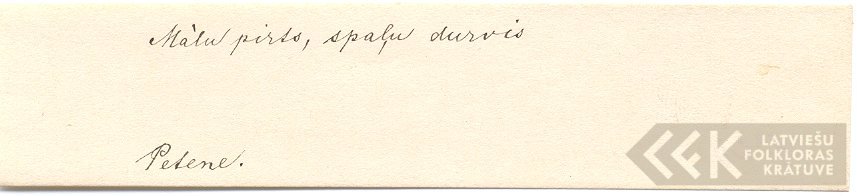 Mālu pirts, spaļu durvis
Petene.
LATVIEŠU
FOLKLORAS
KRĀTUVE